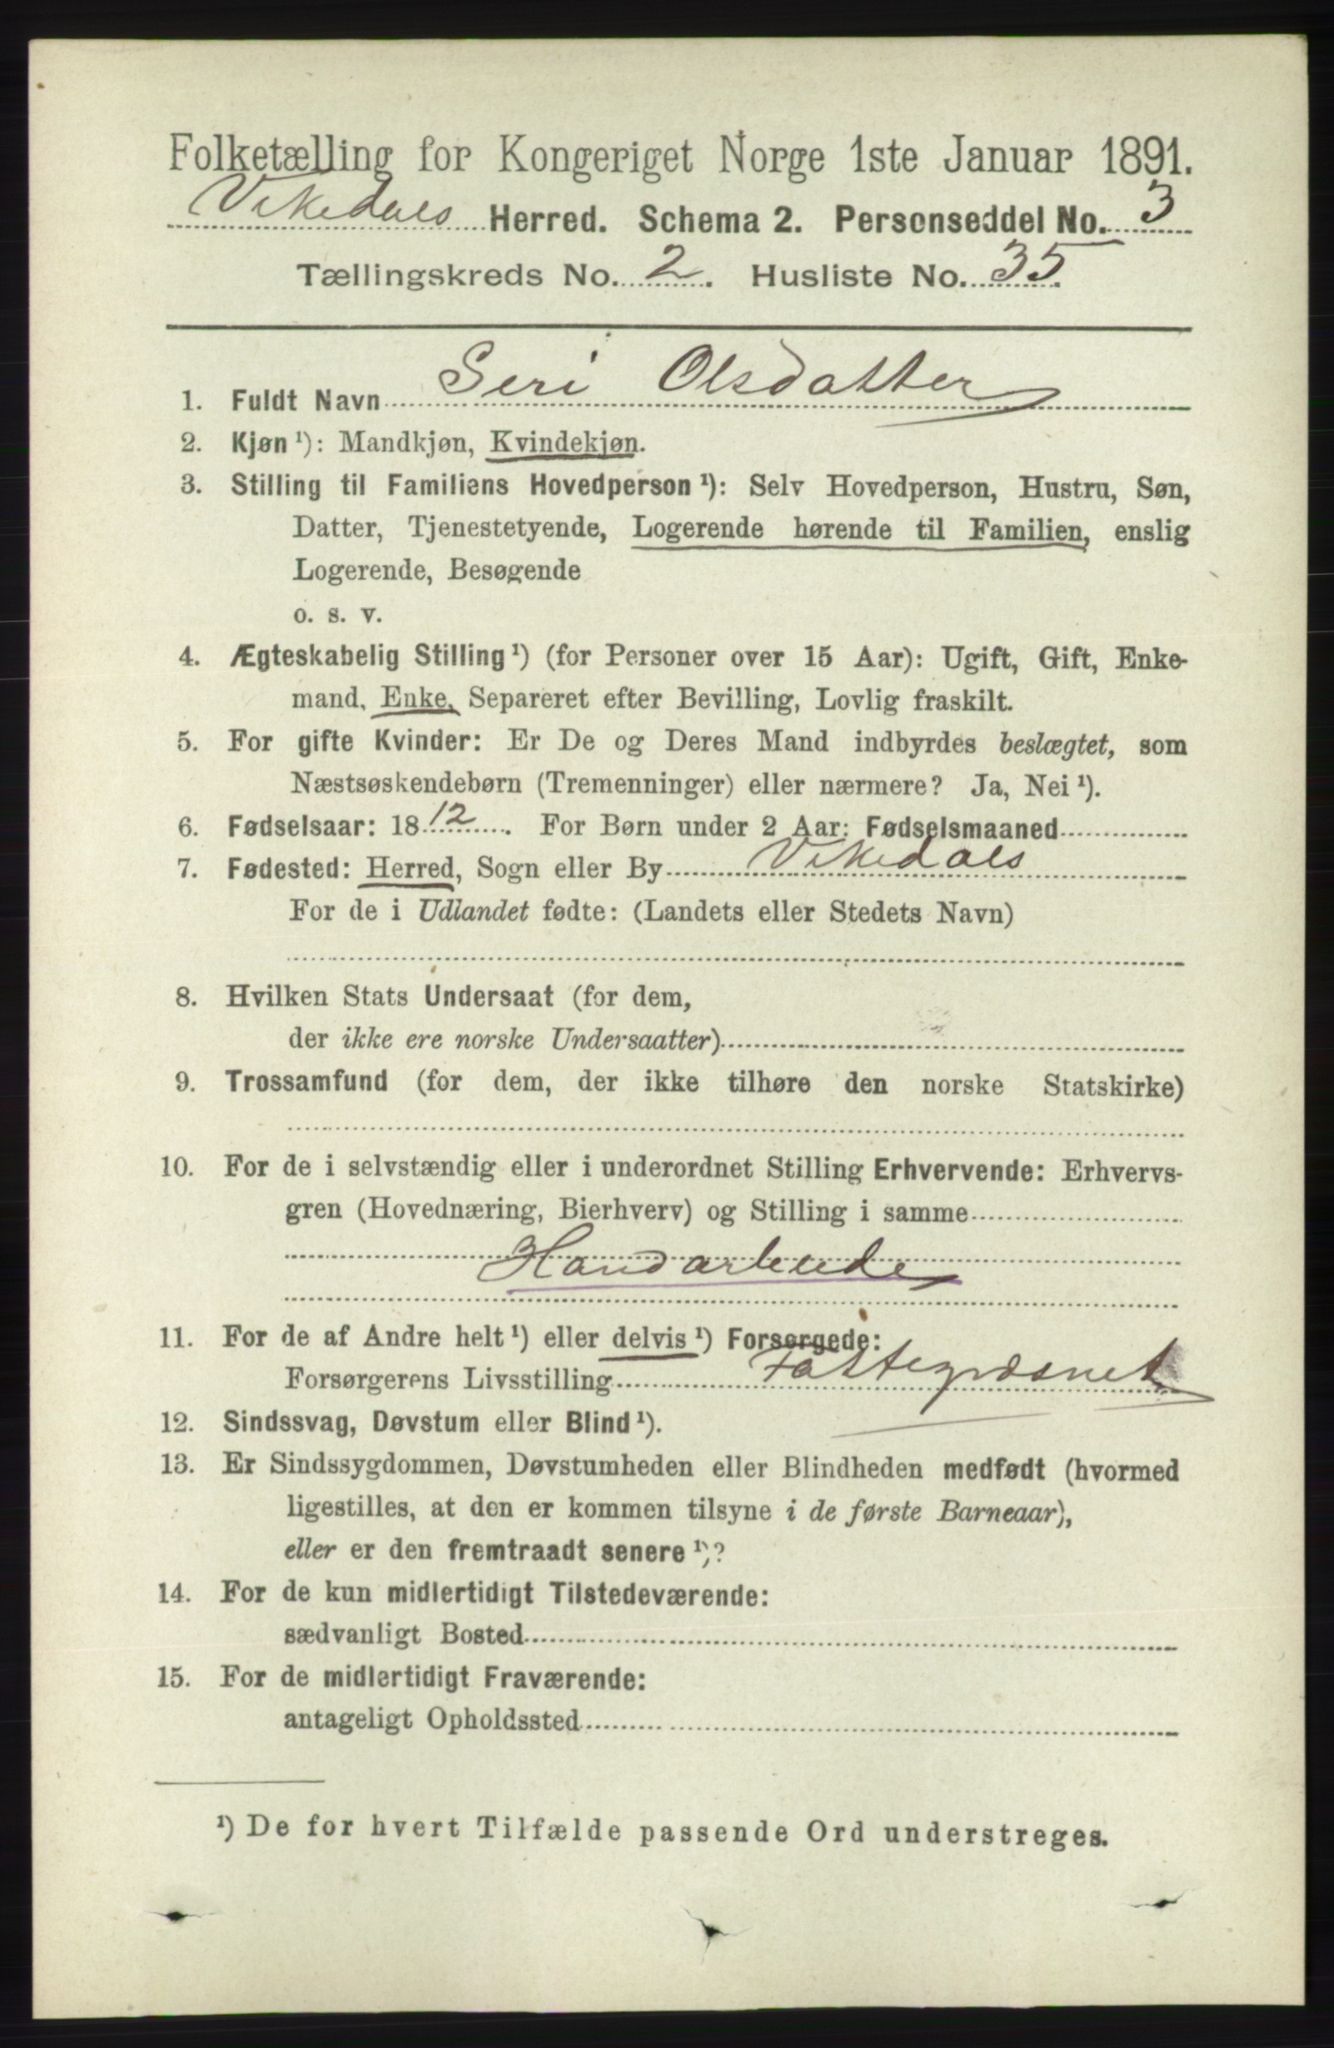 Folketælling for Kongeriget Norge 1ste Januar 1891.
Vikedals Herred. Schema 2. Personseddel No. 3
Tællingskreds No. 2. Husliste No. 35.
1. Fuldt Navn Seri Olsdatter
2. Kjøn ¹): Mandkjøn, Kvindekjøn.
3. Stilling til Familiens Hovedperson ¹): Selv Hovedperson, Hustru, Søn,
Datter, Tjenestetyende, Logerende hørende til Familien, enslig
Logerende, Besøgende
o. s. v.
4. Ægteskabelig Stilling ¹) (for Personer over 15 Aar): Ugift, Gift, Enke-
mand, Enke, Separeret efter Bevilling, Lovlig fraskilt.
5. For gifte Kvinder: Er De og Deres Mand indbyrdes beslægtet, som
Næstsøskendebørn (Tremenninger) eller nærmere? Ja, Nei ¹).
6. Fødselsaar: 1812. For Børn under 2 Aar: Fødselsmaaned
7. Fødested: Herred, Sogn eller By Vikedals
For de i Udlandet fødte: (Landets eller Stedets Navn)
8. Hvilken Stats Undersaat (for dem,
der ikke ere norske Undersaatter)
9. Trossamfund (for dem, der ikke tilhøre den norske Statskirke)
10. For de i selvstændig eller i underordnet Stilling Erhvervende: Erhvervs-
gren (Hovednæring, Bierhverv) og Stilling i samme
Handarbeide
11. For de af Andre helt ¹) eller delvis ¹) Forsørgede:
Forsørgerens Livsstilling
12. Sindssvag, Døvstum eller Blind ¹).
13. Er Sindssygdommen, Døvstumheden eller Blindheden medfødt (hvormed
ligestilles, at den er kommen tilsyne i de første Barneaar),
eller er den fremtraadt senere ¹)?
14. For de kun midlertidigt Tilstedeværende:
sædvanligt Bosted
15. For de midlertidigt Fraværende:
antageligt Opholdssted
¹) De for hvert Tilfælde passende Ord understreges.